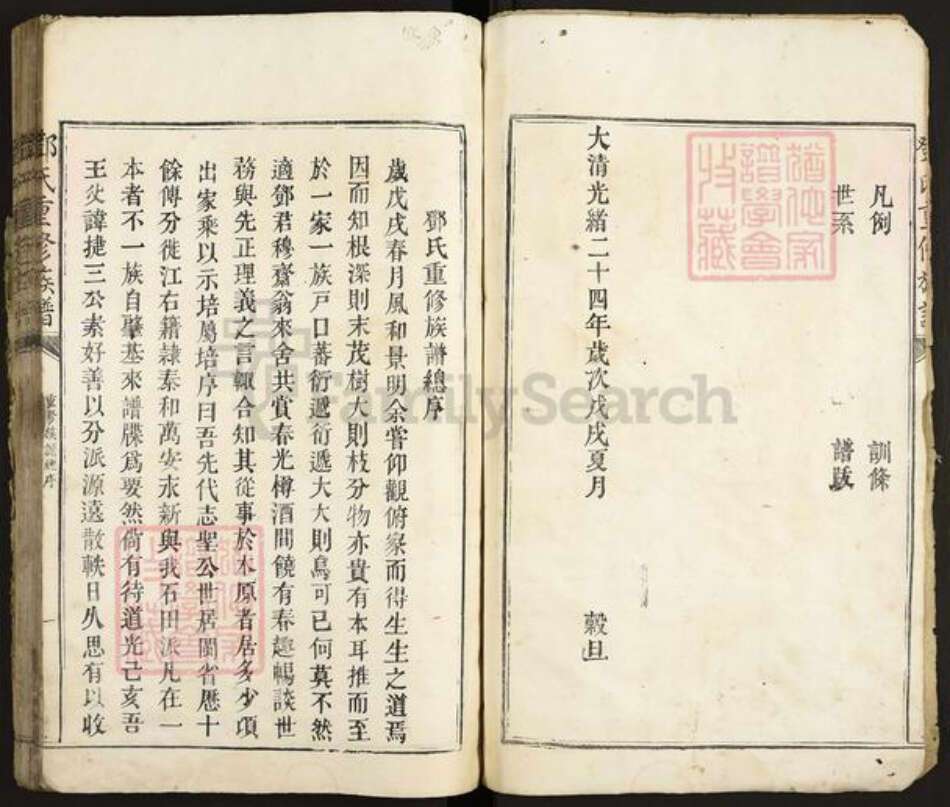 凡例 訓條
世系 譜跋
大清光緒二十四年歲次戊戌夏月 穀旦
鄧氏重修族譜總序
歲戊戌春月風和景明余嘗仰觀俯察而得生生之道焉
因而知根深則末茂樹大則枝分物亦貴有本耳推而至
於一家一族戶口蕃衍遞衍遞大大則烏可已何莫不然
適鄧君穆齋翁來舍共賞春光樽酒間饒有春趣暢談世
務與先正理義之言輒合知其從事於木原者居多少項
出家乘以示培屬培序曰吾先代志聖公世居閩省歷十
餘傳分徙江右籍隸泰和萬安永新與我石田派凡在一
本者不一族自肇基來譜牒爲要然尙有待道光己亥吾
王父諱捷三公素好善以分派源遠散軼日久思有以收
鄧氏重修族譜
FamilySearch